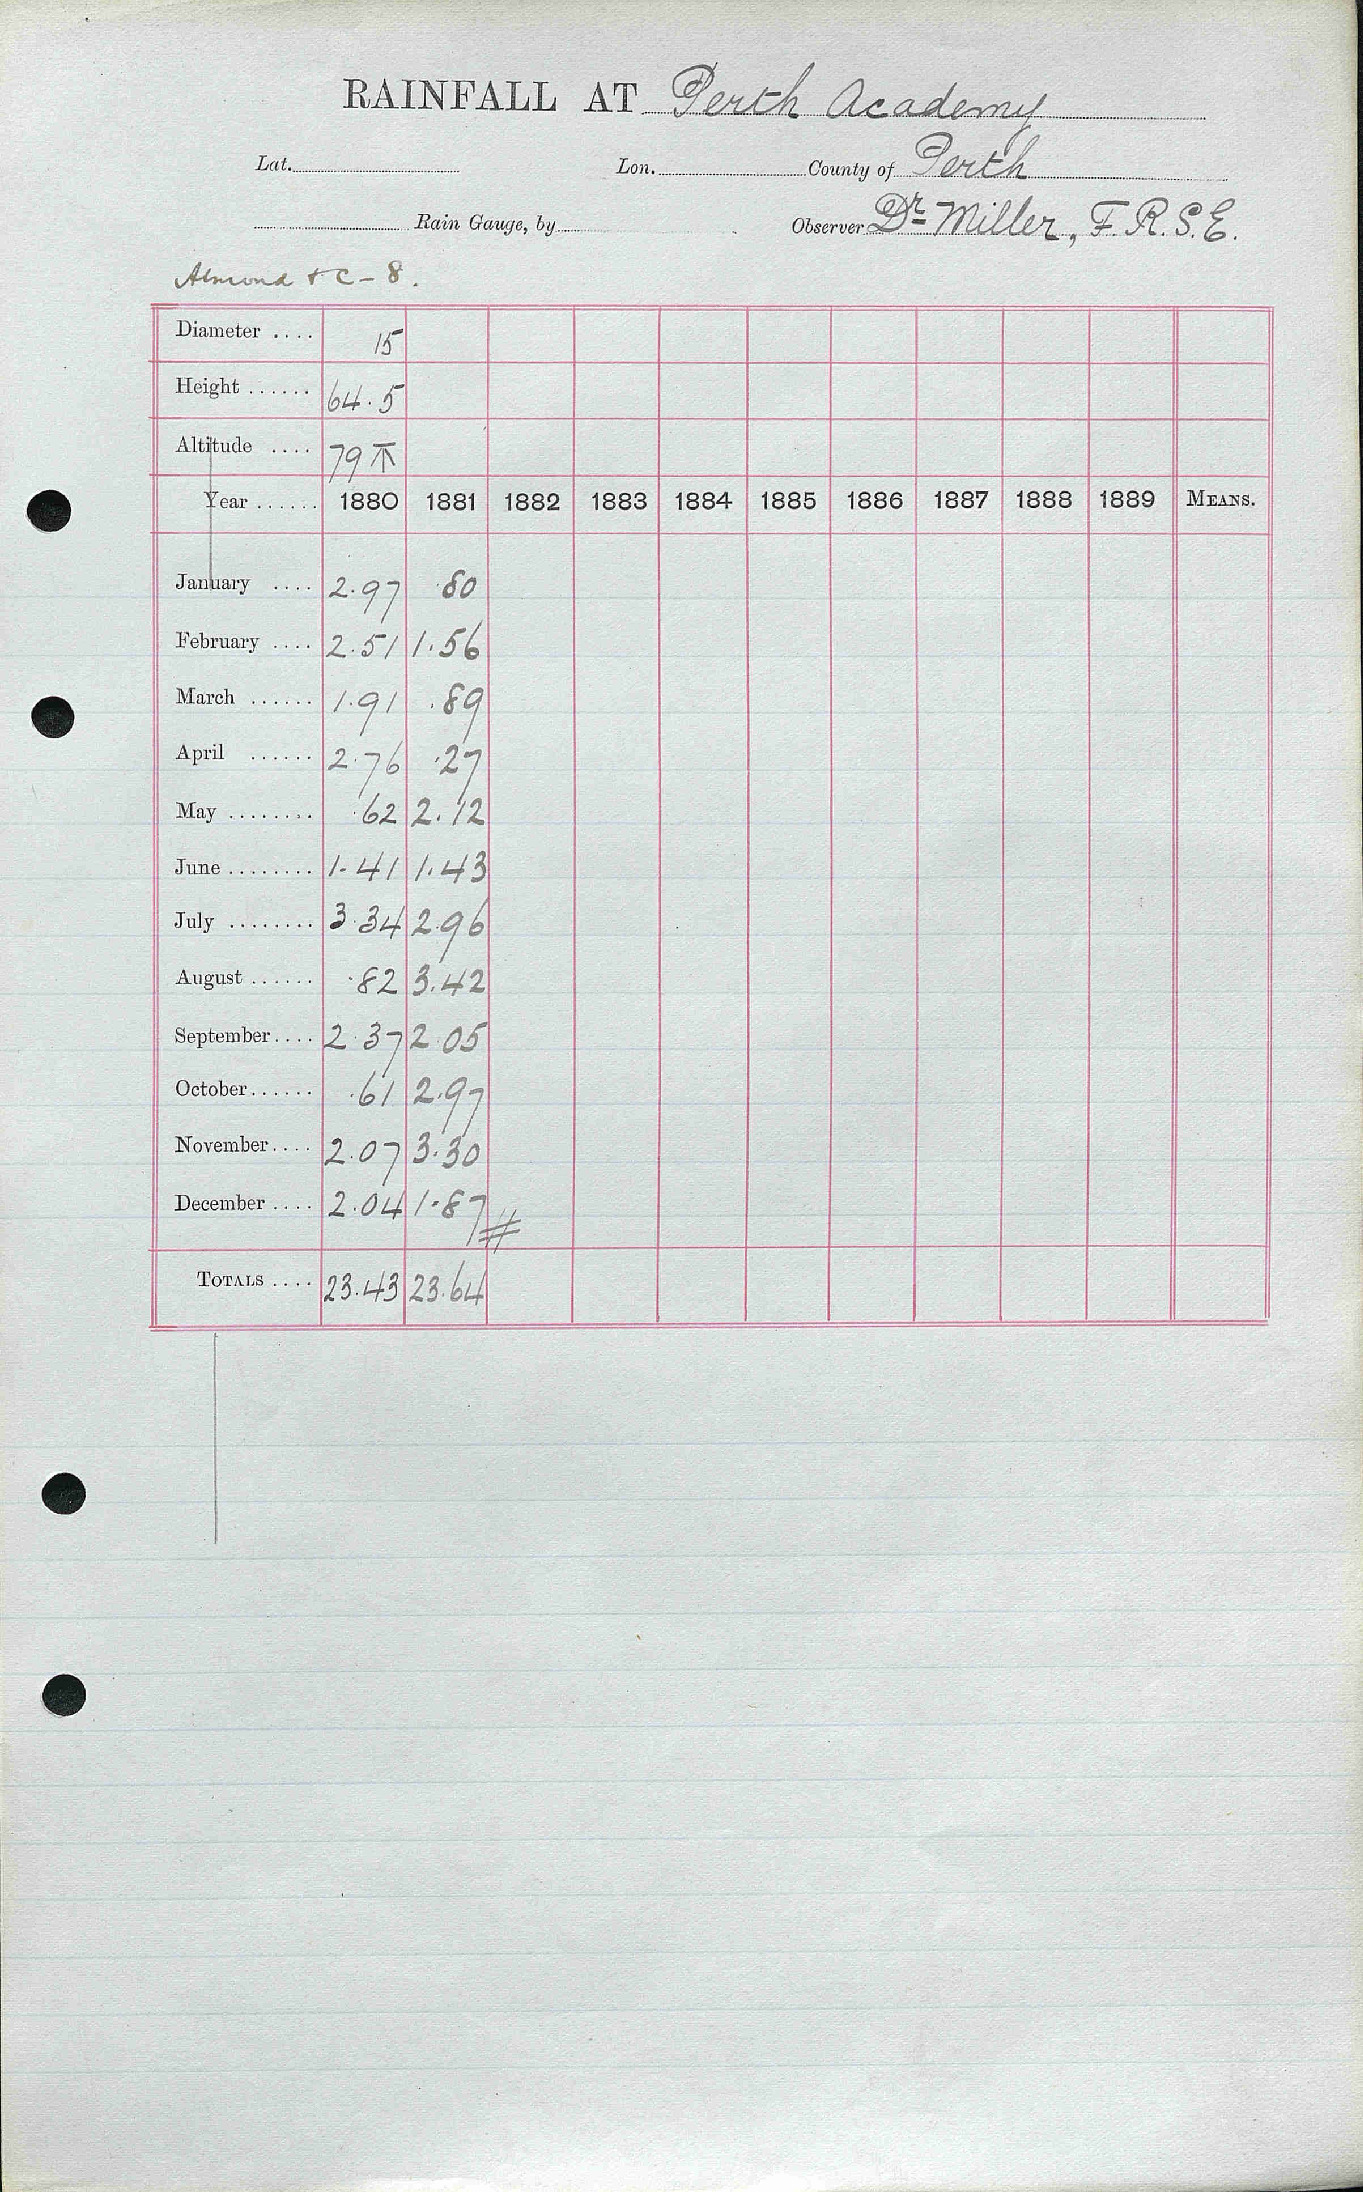 RAINFALL AT Perth Academy
Lat. Lon. County of Perth
Rain Gauge, by Observer Dr Miller, F.R.S.E.
Almond & C - 8.
Diameter .... 15
Height ...... 64.5
Altitude .... 79
Year ...... 1880 1881 1882 1883 1884 1885 1886 1887 1888 1889 MEANS.
January .... 2.97 .80
February .... 2.51 1.56
March ...... 1.91 .89
April ...... 2.76 .27
May ........ .62 2.12
June ........ 1.41 1.43
July ........ 3.34 2.96
August ...... .82 3.42
September .... 2.37 2.05
October ...... .61 2.97
November .... 2.07 3.30
December .... 2.04 1.87
TOTALS .... 23.43 23.64